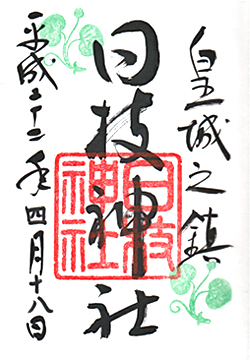 皇城之鎮
日枝神社
日枝
神社
平成二十二年四月十八日